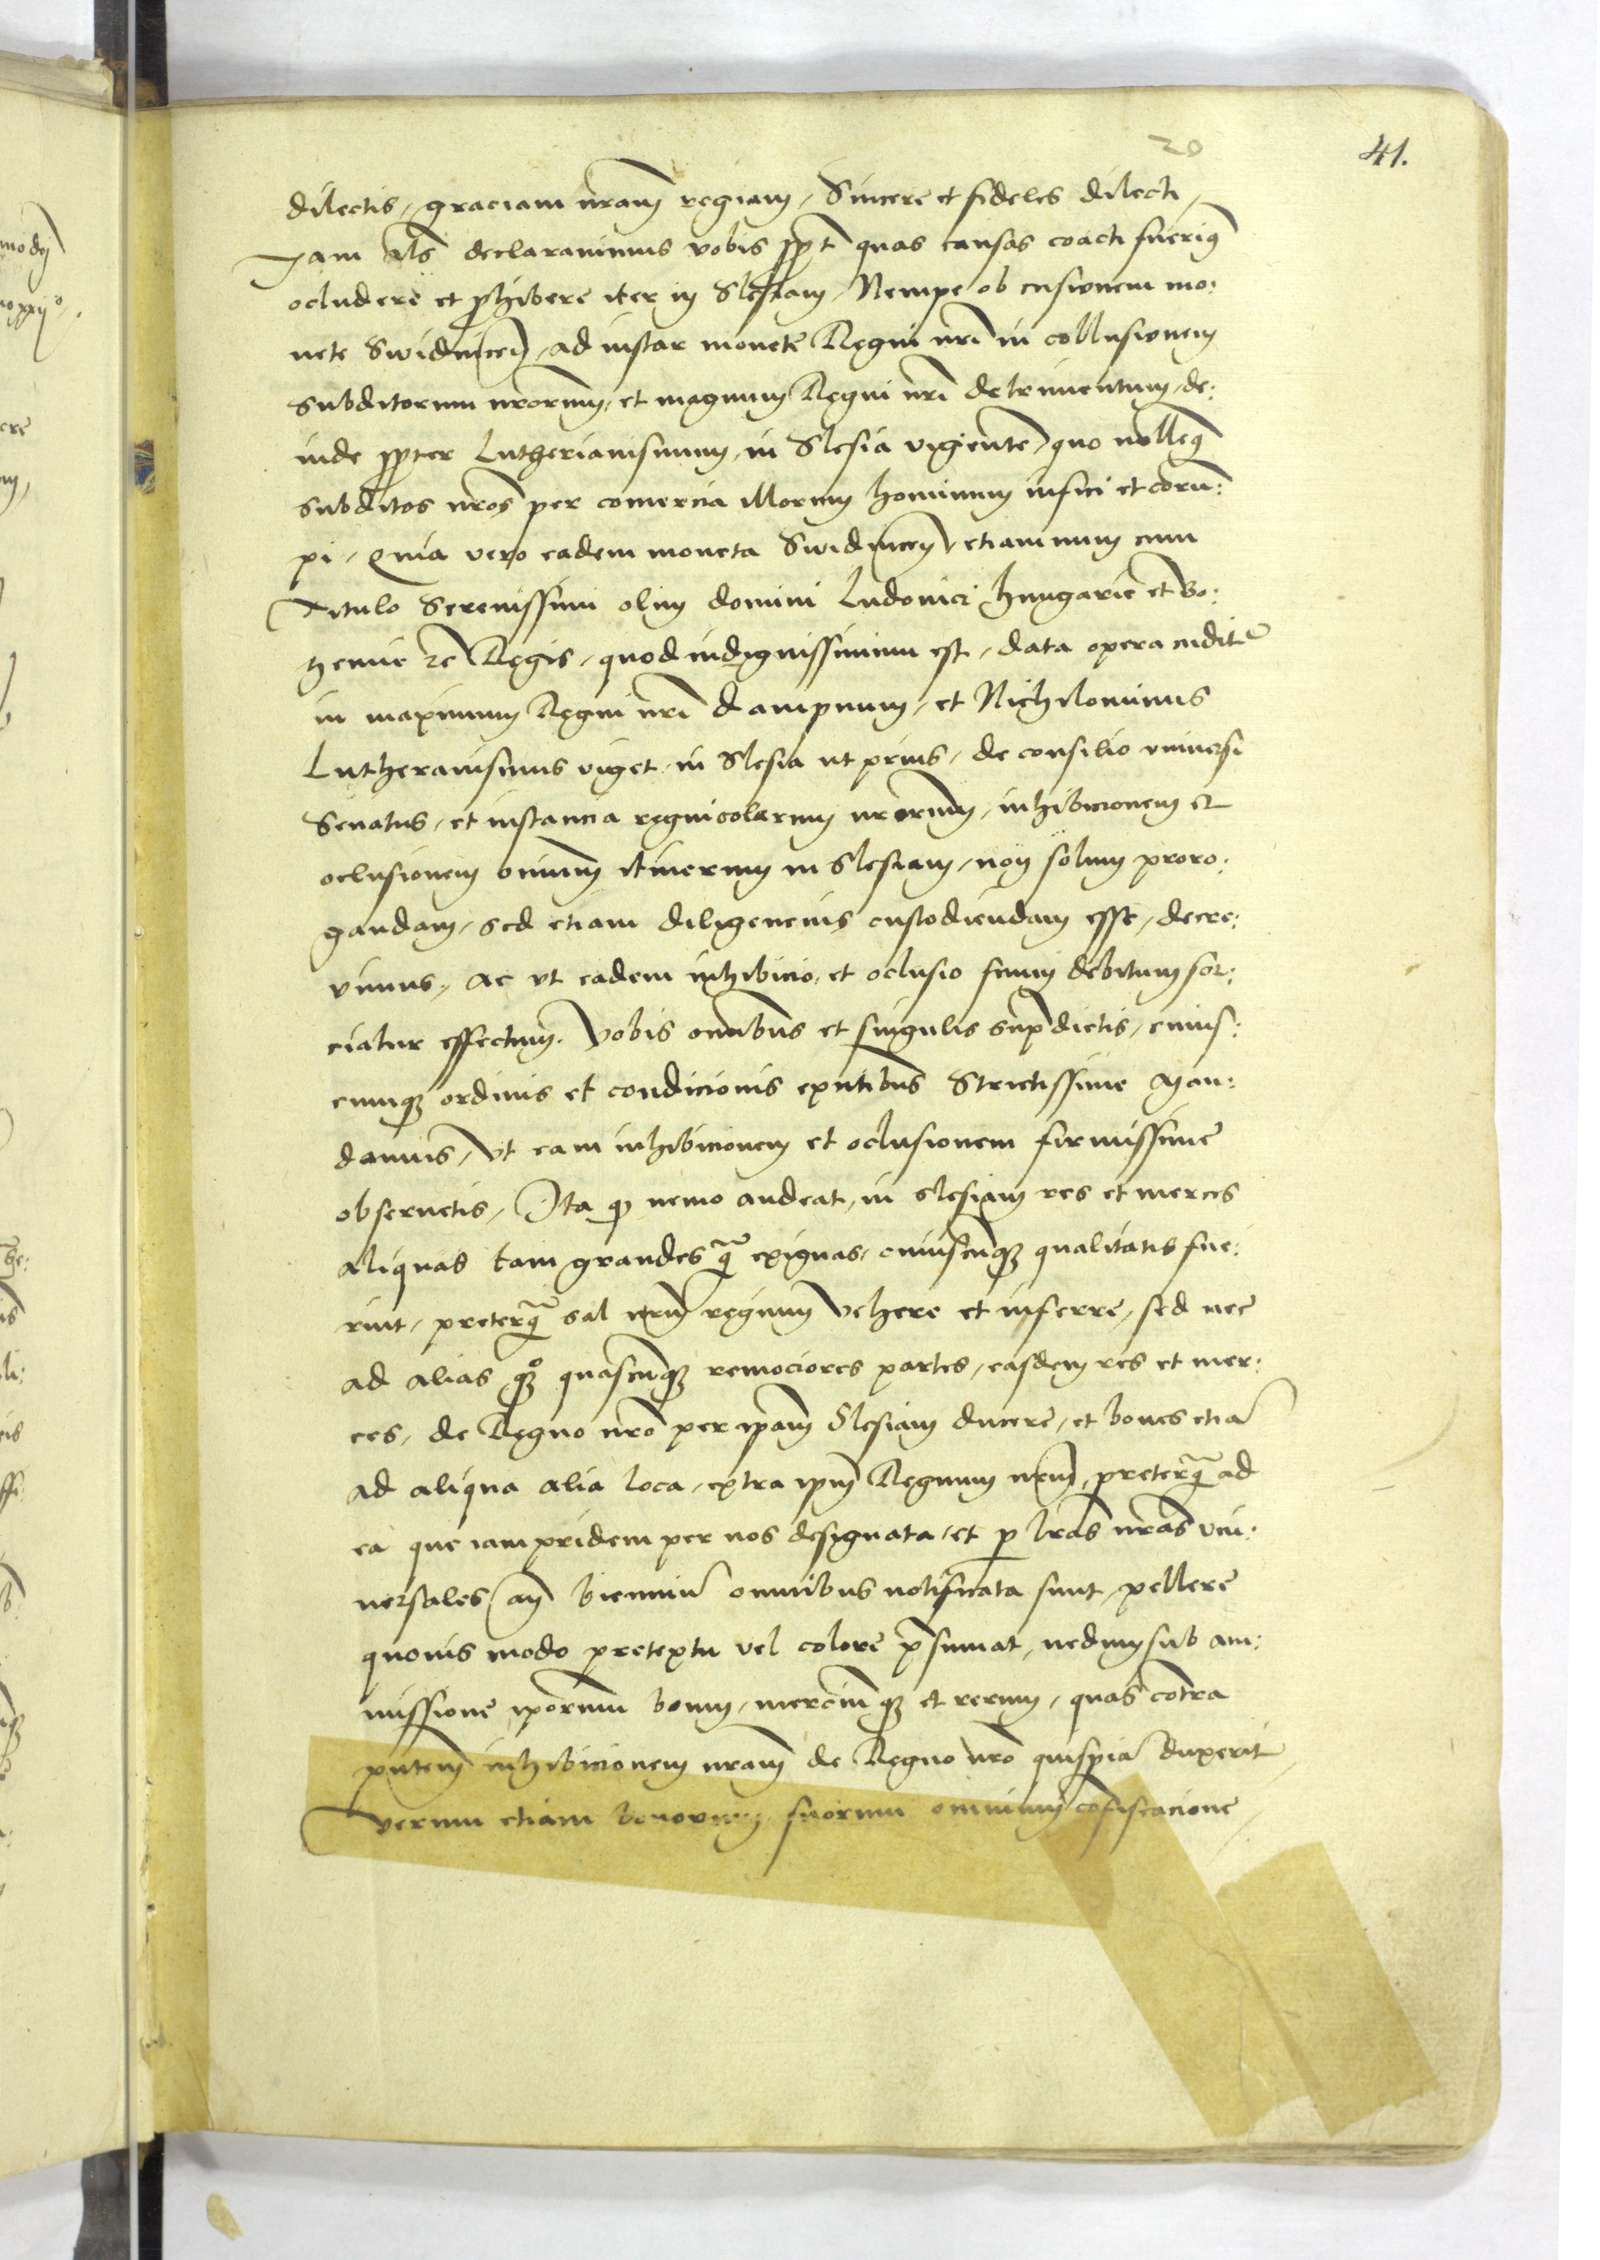 20
41.
dilectis, graciam nram regiam, Sincere et fideles dilecti,
Jam als declaravimus vobis ppt quas causas coacti fuerim9
ocludere et phibere iter in Slesiam, Nempe ob cusionem mo:
nete Swidnicen, ad instar monete Regni nri in collusionem
Subditorum nrorum, et magnum Regni nri detrimentum, de:
inde ppter Lutherianismum, in Slesia vigente, quo nollem9
subditos nros per comercia illorum hominum infici et coru:
pi, Quia vero eadem moneta Swidnicen, etiamnum cum
Titulo Serenissimi olim domini Ludovici Hungarie et Bo:
hemie zc Regis, quod indignissimum est, data opera cuditr
in maximum Regni nri dampnum, et Nichilominus
Lutheranismus viget, in Slesia ut prius, de consilio universi
Senatus, et instancia regnicolarum nrorum, inhibicionem et
oclusionem omnium itinerum in Slesiam, non solum proro:
gandam, sed etiam diligencius custodiendam esse, decre:
vimus, ac ut eadem inhibicio, et oclusio suum debitum sor:
ciatur effectum. Vobis omnibus et singulis supdictis, cuius:
cumq3 ordinis et condicionis exntibus Strictissime Man:
damus, Ut eam inhibicionem et oclusionem firmissime
observetis, Ita q nemo audeat, in Slesiam res et merces
aliquas tam grandes q exiguas, cuiuscunq3 qualitatis fue:
rint, preterq sal nrum regium vehere et inferre, sed nec
ad alias q3 quascunq3 remociores partes, easdem res et mer:
ces, de Regno nro per ipam Slesiam ducere, et boves etia
ad aliqua alia loca, extra ipm Regnum nrum, preterq ad
ea que iam pridem per nos designata, et p lras nras uni:
versales an bienniu omnibus notificata sunt, pellere
quovis modo pretextu vel colore psumat, nedum sub am:
missione iporum boum, mercium q3 et rerum, quas contra
pntem inhibicionem nram de Regno nro quispia duxerit,
Verum etiam bonorum suorum omnium cofiscacione,